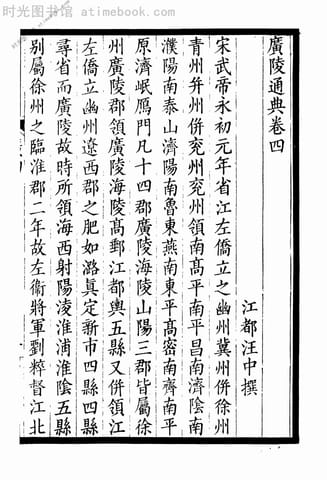 时光图书馆 atimebook.com
廣陵通典卷四
江都汪中撰
宋武帝永初元年省江左僑立之幽州冀州併徐州
青州并州併兗州兗州領南髙平南平昌南濟陰南
濮陽南泰山濟陽南魯東燕南東平髙密南齊南平
原濟岷鴈門凡十四郡廣陵海陵山陽三郡皆屬徐
州廣陵郡領廣陵海陵髙郵江都輿五縣又併領江
左僑立幽州遼西郡之肥如潞真定新市四縣四縣
尋省而廣陵故時所領海西射陽淩淮浦淮陰五縣
別屬徐州之臨淮郡二年故左衞將軍劉粹督江北